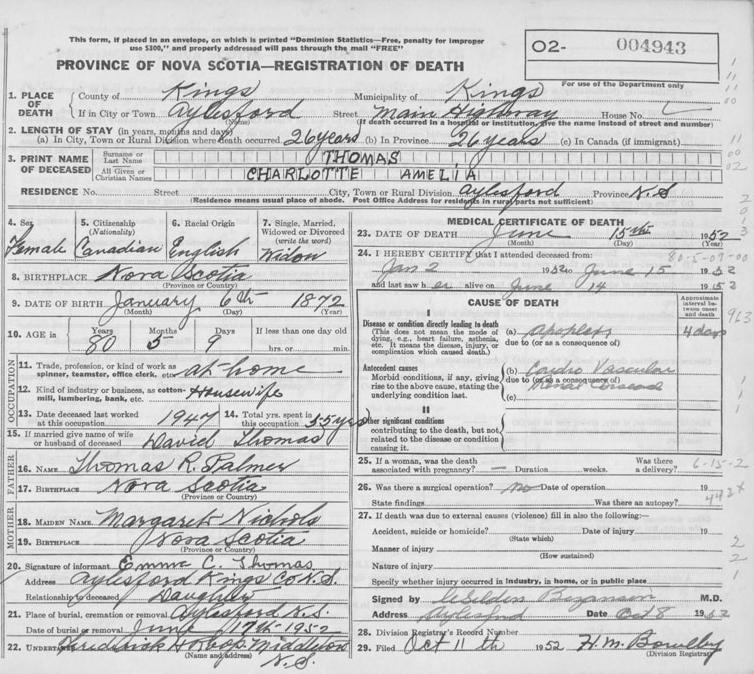 This form, if placed in an envelope, on which is printed "Dominion Statistics—Free, penalty for improper
use $300," and properly addressed will pass through the mail "FREE"
PROVINCE OF NOVA SCOTIA—REGISTRATION OF DEATH
O2- 004943
For use of the Department only
1. PLACE OF DEATH County of Kings Municipality of Kings
If in City or Town Aylesford Street Main Highway House No.
(Name) (If death occurred in a hospital or institution, give the name instead of street and number)
2. LENGTH OF STAY (in years, months and days)
(a) In City, Town or Rural Division where death occurred 26 years (b) In Province 26 years (c) In Canada (if immigrant)
3. PRINT NAME OF DECEASED Surname or Last Name THOMAS
All Given or Christian Names CHARLOTTE AMELIA
RESIDENCE No. Street City, Town or Rural Division Aylesford Province N.S
(Residence means usual place of abode. Post Office Address for residents in rural parts not sufficient)
4. Sex Female
5. Citizenship (Nationality) Canadian
6. Racial Origin English
7. Single, Married, Widowed or Divorced (write the word) Widow
8. BIRTHPLACE Nova Scotia
(Province or Country)
9. DATE OF BIRTH January 6th 1872
(Month) (Day) (Year)
10. AGE in Years 80 Months 5 Days 9 If less than one day old hrs. or min.
OCCUPATION
11. Trade, profession, or kind of work as spinner, teamster, office clerk, etc. at-home
12. Kind of industry or business, as cotton-mill, lumbering, bank, etc. Housewife
13. Date deceased last worked at this occupation 1947
14. Total yrs. spent in this occupation 55 yrs
15. If married give name of wife or husband of deceased David Thomas
FATHER
16. NAME Thomas R. Palmer
17. BIRTHPLACE Nova Scotia
(Province or Country)
MOTHER
18. MAIDEN NAME Margaret Nichols
19. BIRTHPLACE Nova Scotia
(Province or Country)
20. Signature of informant Emma C. Thomas
Address Aylesford Kings Co N.S.
Relationship to deceased Daughter
21. Place of burial, cremation or removal Aylesford N.S.
Date of burial or removal June 17th 1952
22. UNDERTAKER Frederick Middleton
(Name and address) N.S.
MEDICAL CERTIFICATE OF DEATH
23. DATE OF DEATH June 15th 1952
(Month) (Day) (Year)
24. I HEREBY CERTIFY that I attended deceased from: 80-5-09-00
Jan 2 1952 to June 15 1952
and last saw her alive on June 14 1952
CAUSE OF DEATH
Approximate interval between onset and death
963
I
Disease or condition directly leading to death (a) apoplexy 4 days
(This does not mean the mode of dying, e.g., heart failure, asthenia, etc. It means the disease, injury, or complication which caused death.)
due to (or as a consequence of)
Antecedent causes (b) Cardio Vascular
Morbid conditions, if any, giving rise to the above cause, stating the underlying condition last.
due to (or as a consequence of) Renal disease
(c)
II
Other significant conditions
contributing to the death, but not related to the disease or condition causing it.
25. If a woman, was the death associated with pregnancy? — Duration weeks. Was there a delivery? 6-15-2
26. Was there a surgical operation? no Date of operation 19
State findings Was there an autopsy? 442X
27. If death was due to external causes (violence) fill in also the following:—
Accident, suicide or homicide? Date of injury 19
(State which)
Manner of injury
(How sustained)
Nature of injury
Specify whether injury occurred in industry, in home, or in public place
Signed by M.D.
Address Aylesford Date Oct 8 1952
28. Division Registrar's Record Number
29. Filed Oct 11th 1952 H.M. Bowlby
(Division Registrar)